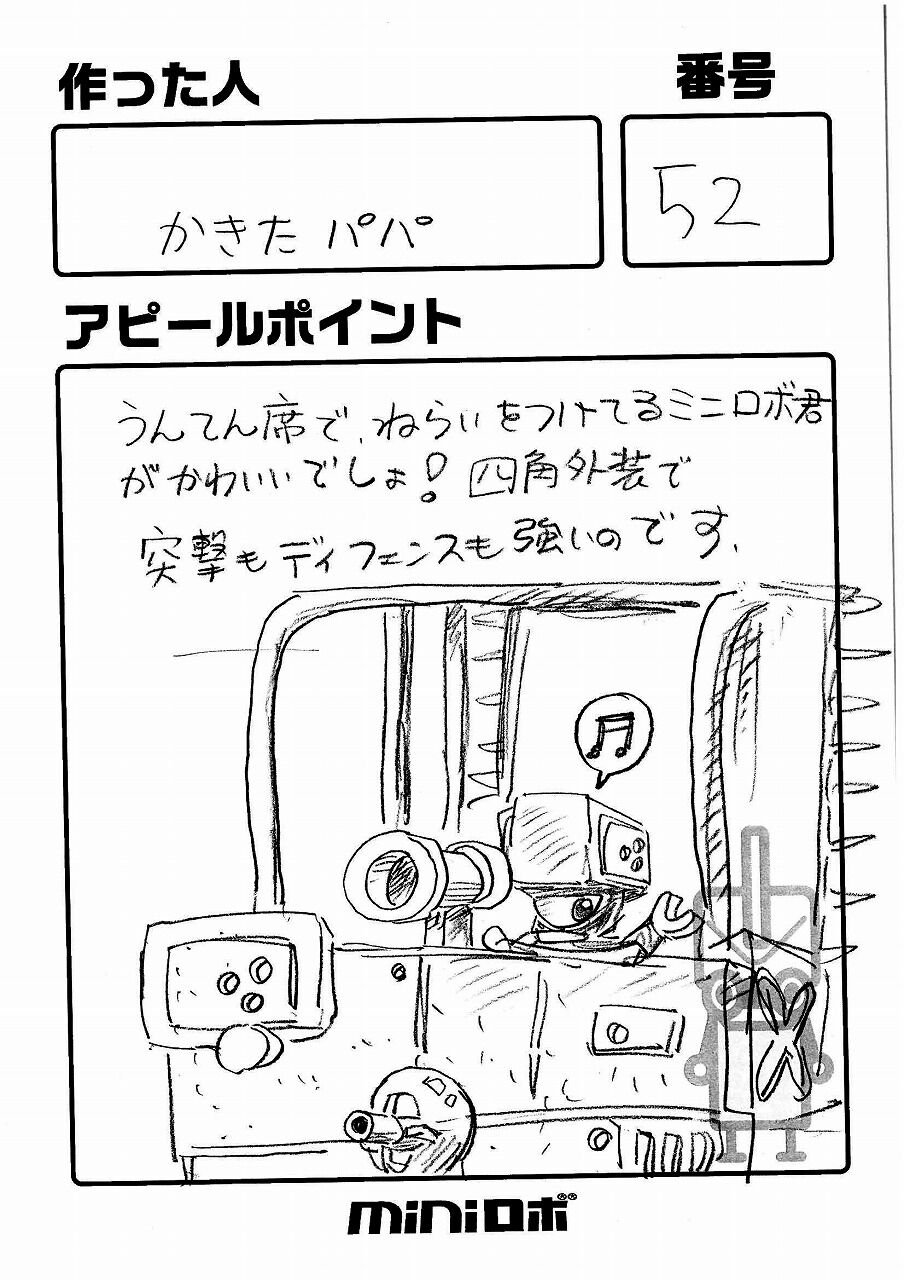 作った人
番号
かきたパパ
52
アピールポイント
うんてん席で、ねらいをつけてるミニロボ君
がかわいいでしょ！四角外装で
突撃もディフェンスも強いのです、
miniロボ